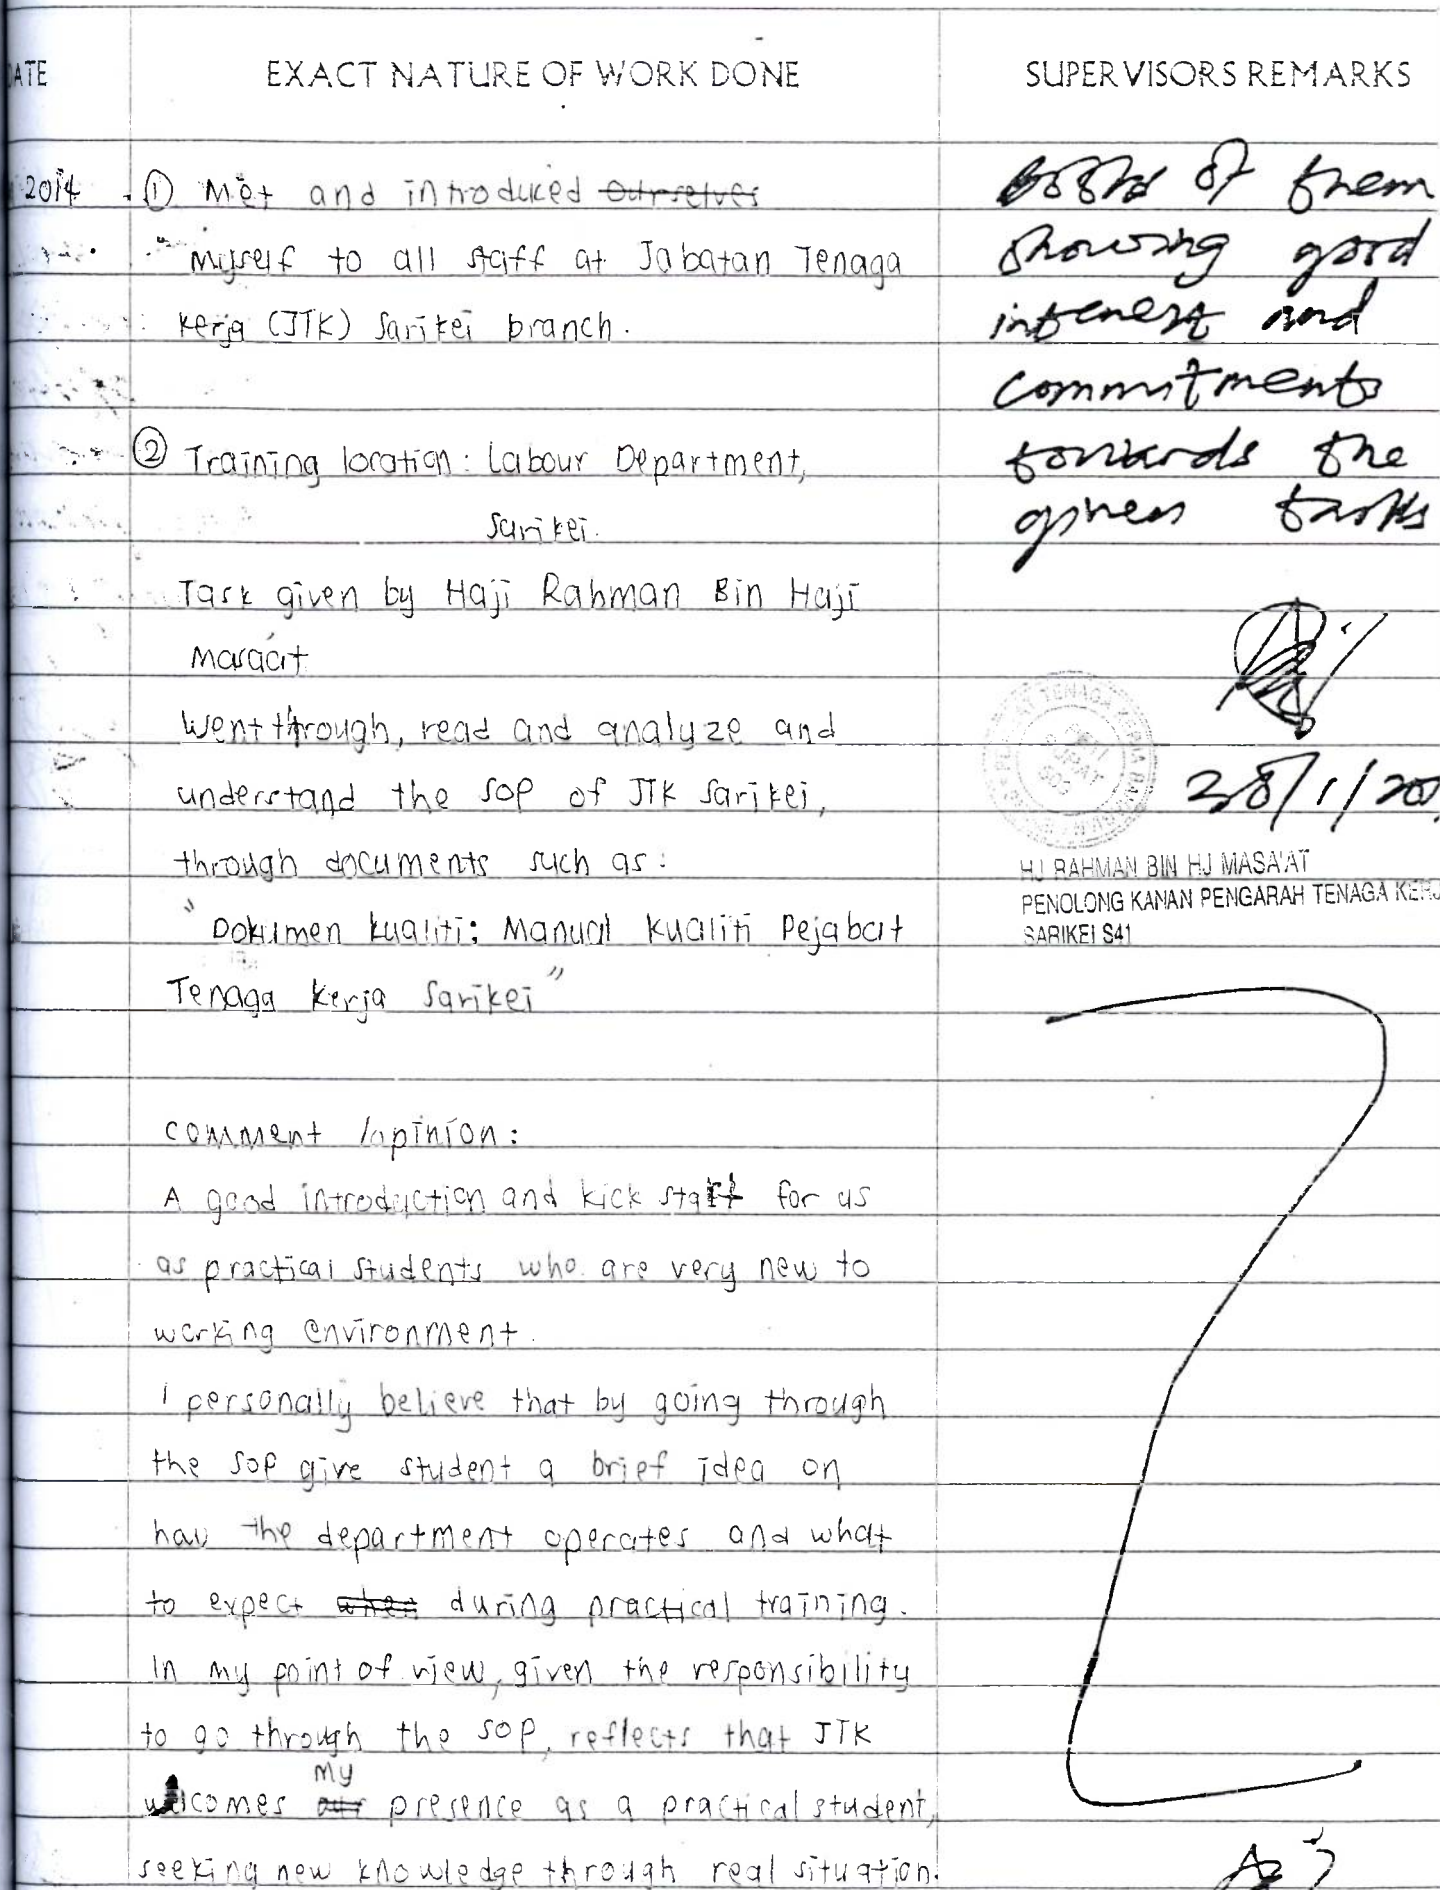 DATE
EXACT NATURE OF WORK DONE
SUPERVISORS REMARKS
2014
① Met and introduced ourselves
myself to all staff at Jabatan Tenaga
Kerja (JTK) Sarikei branch.
② Training location: Labour Department,
Sarikei.
Task given by Haji Rahman Bin Haji
Masa'at
Went through, read and analyze and
understand the SOP of JTK Sarikei,
through documents such as:
"Dokumen kualiti: Manual Kualiti Pejabat
Tenaga Kerja Sarikei"
comment /opinion:
A good introduction and kick start for us
as practical students who are very new to
working environment.
I personally believe that by going through
the SOP give student a brief idea on
how the department operates and what
to expect when during practical training.
In my point of view, given the responsibility
to go through the SOP, reflects that JTK
my
welcomes our presence as a practical student,
seeking new knowledge through real situation.
Both of them
showing good
interest and
commitments
towards the
given tasks
28/1/20
HJ RAHMAN BIN HJ MASA'AT
PENOLONG KANAN PENGARAH TENAGA KERJ
SARIKEI S41